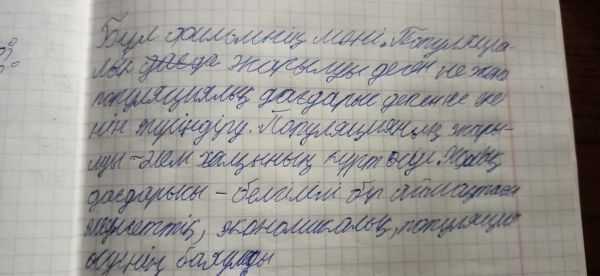 Бұл фильмнің мәні. Популяция-
лық жарылуы деген не және
популяциялық дағдарыс дегенге не
нін түсіндіру. Популяцияның жары-
луы - әлем халқының күрт өсуі. Халық
дағдарысы - белгілі бір аймақтағы
әлеуметтік, экономикалық, популяция
өсуінің баяулауы